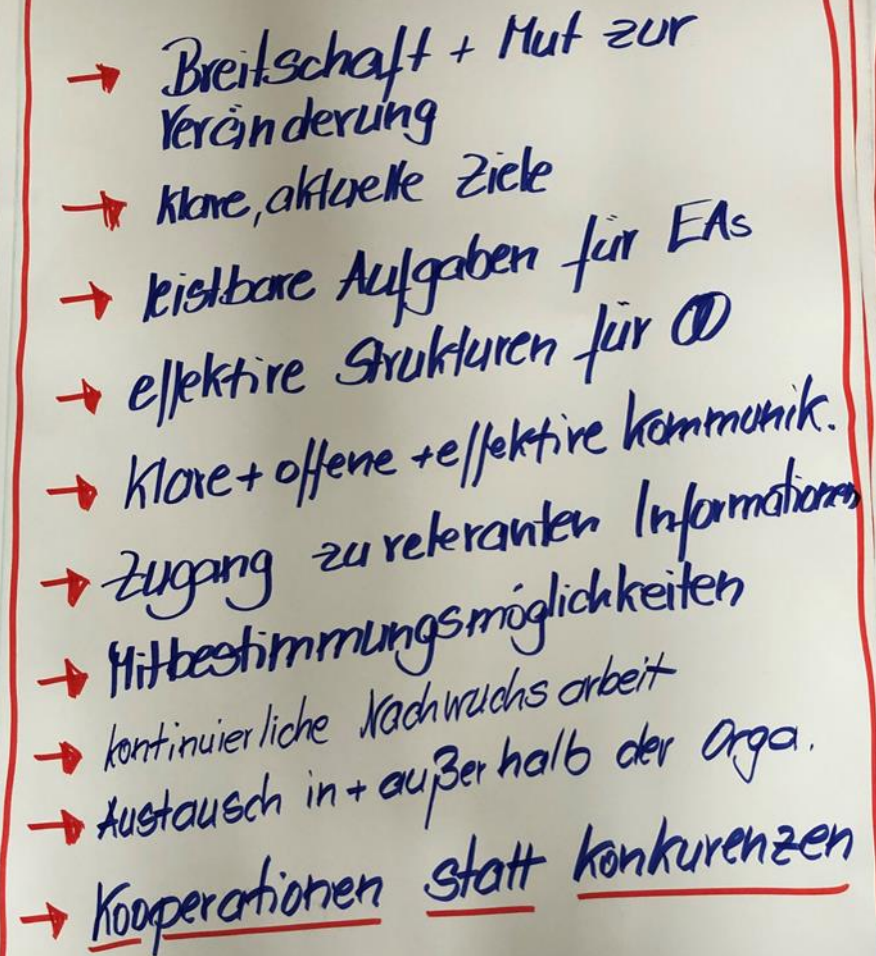 → Breitschaft + Mut zur
Veränderung
→ klare, aktuelle Ziele
→ leistbare Aufgaben für EAs
→ effektive Strukturen für
→ Klare + offene + effektive Kommunik.
→ Zugang zu relevanten Informationen
→ Mitbestimmungsmöglichkeiten
→ kontinuierliche Nachwuchsarbeit
→ Austausch in + außerhalb der Orga.
→ Kooperationen statt Konkurenzen